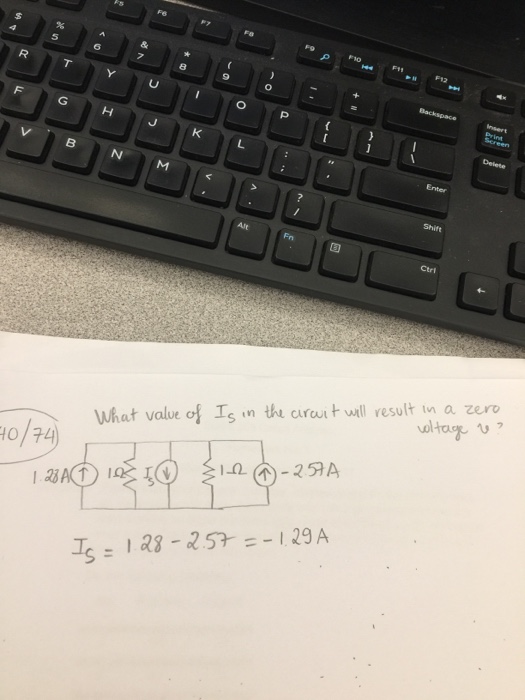 F5 F6 F7 F8 F9 F10 F11 F12
$ 4 % 5 ^ 6 & 7 * 8 ( 9 ) 0 - + = Backspace Insert Print Screen
R T Y U I O P { [ } ] | \ Delete
F G H J K L : ; " ' Enter
V B N M < , > . ? / Shift
Alt Fn Ctrl ←
40/74) What value of Is in the circuit will result in a zero
voltage v?
1.28A 1Ω Is 1Ω -2.57A
Is = 1.28 - 2.57 = -1.29A